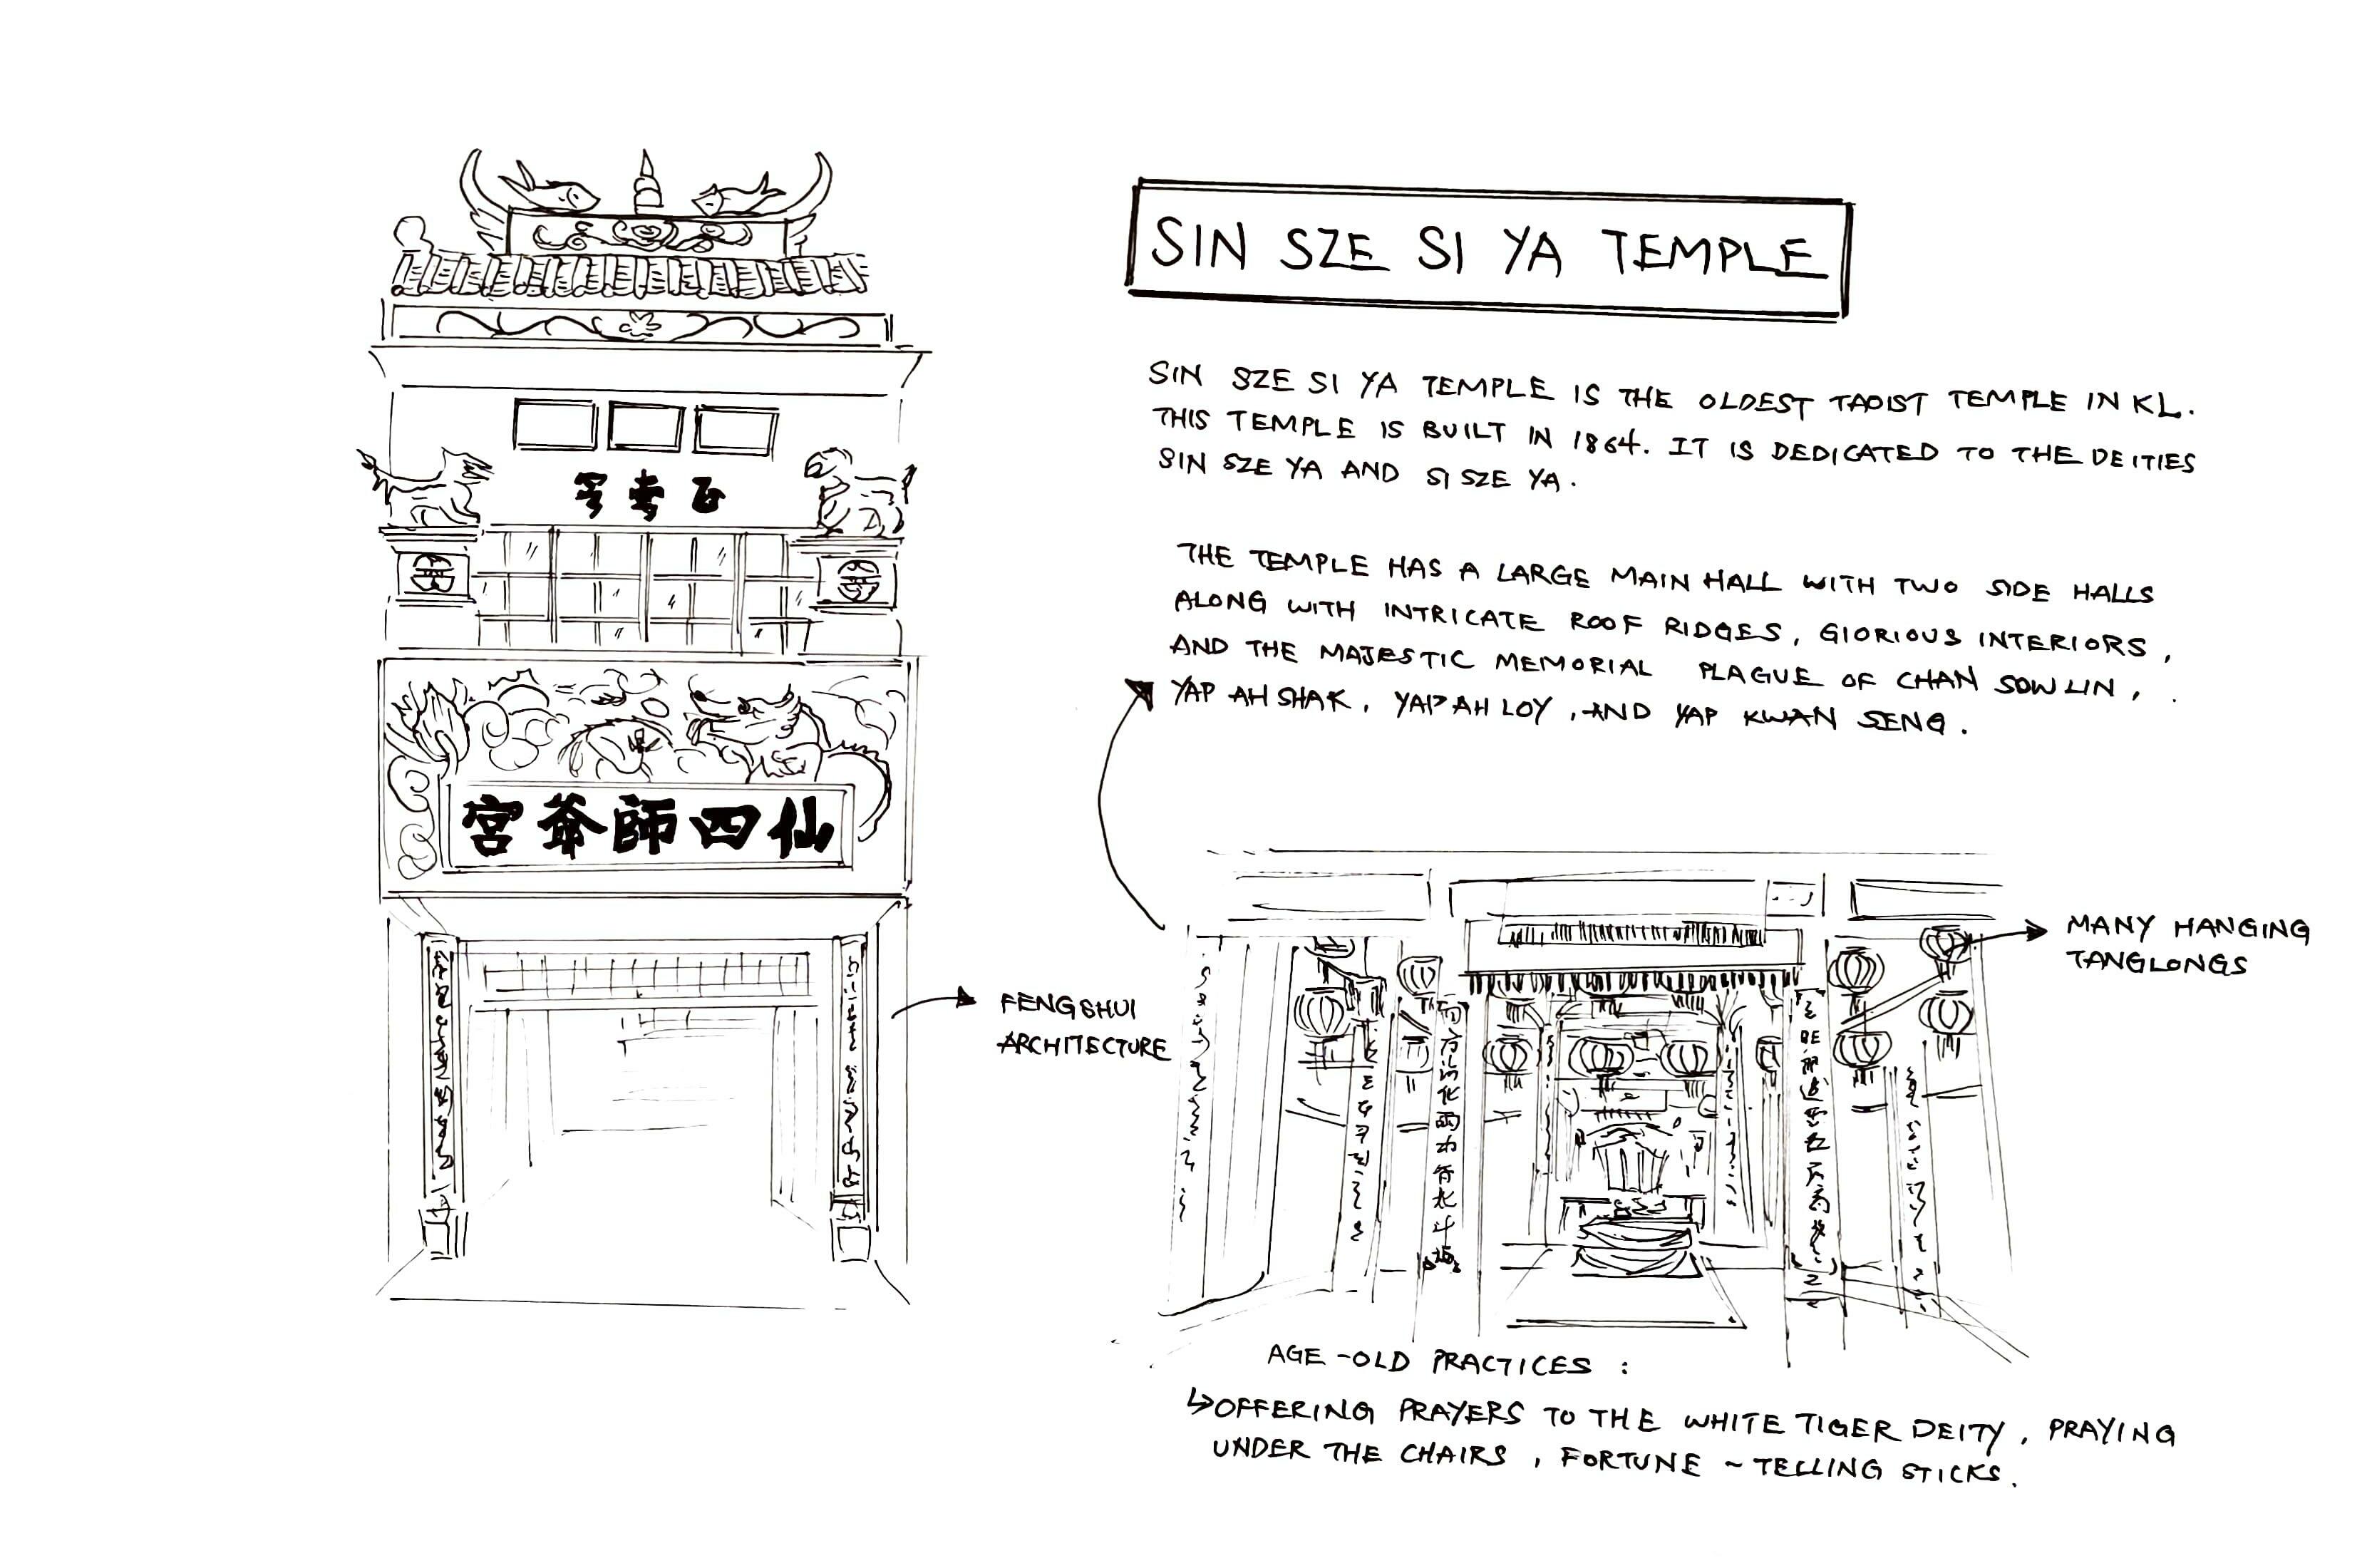 SIN SZE SI YA TEMPLE
SIN SZE SI YA TEMPLE IS THE OLDEST TAOIST TEMPLE IN KL.
THIS TEMPLE IS BUILT IN 1864. IT IS DEDICATED TO THE DEITIES
SIN SZE YA AND SI SZE YA.
THE TEMPLE HAS A LARGE MAIN HALL WITH TWO SIDE HALLS
ALONG WITH INTRICATE ROOF RIDGES, GLORIOUS INTERIORS,
AND THE MAJESTIC MEMORIAL PLAGUE OF CHAN SOW LIN,
YAP AH SHAK, YAP AH LOY, AND YAP KWAN SENG.
仙四師爺宮
FENGSHUI
ARCHITECTURE
MANY HANGING
TANGLONGS
AGE-OLD PRACTICES :
↳OFFERING PRAYERS TO THE WHITE TIGER DEITY, PRAYING
UNDER THE CHAIRS, FORTUNE ~ TELLING STICKS.